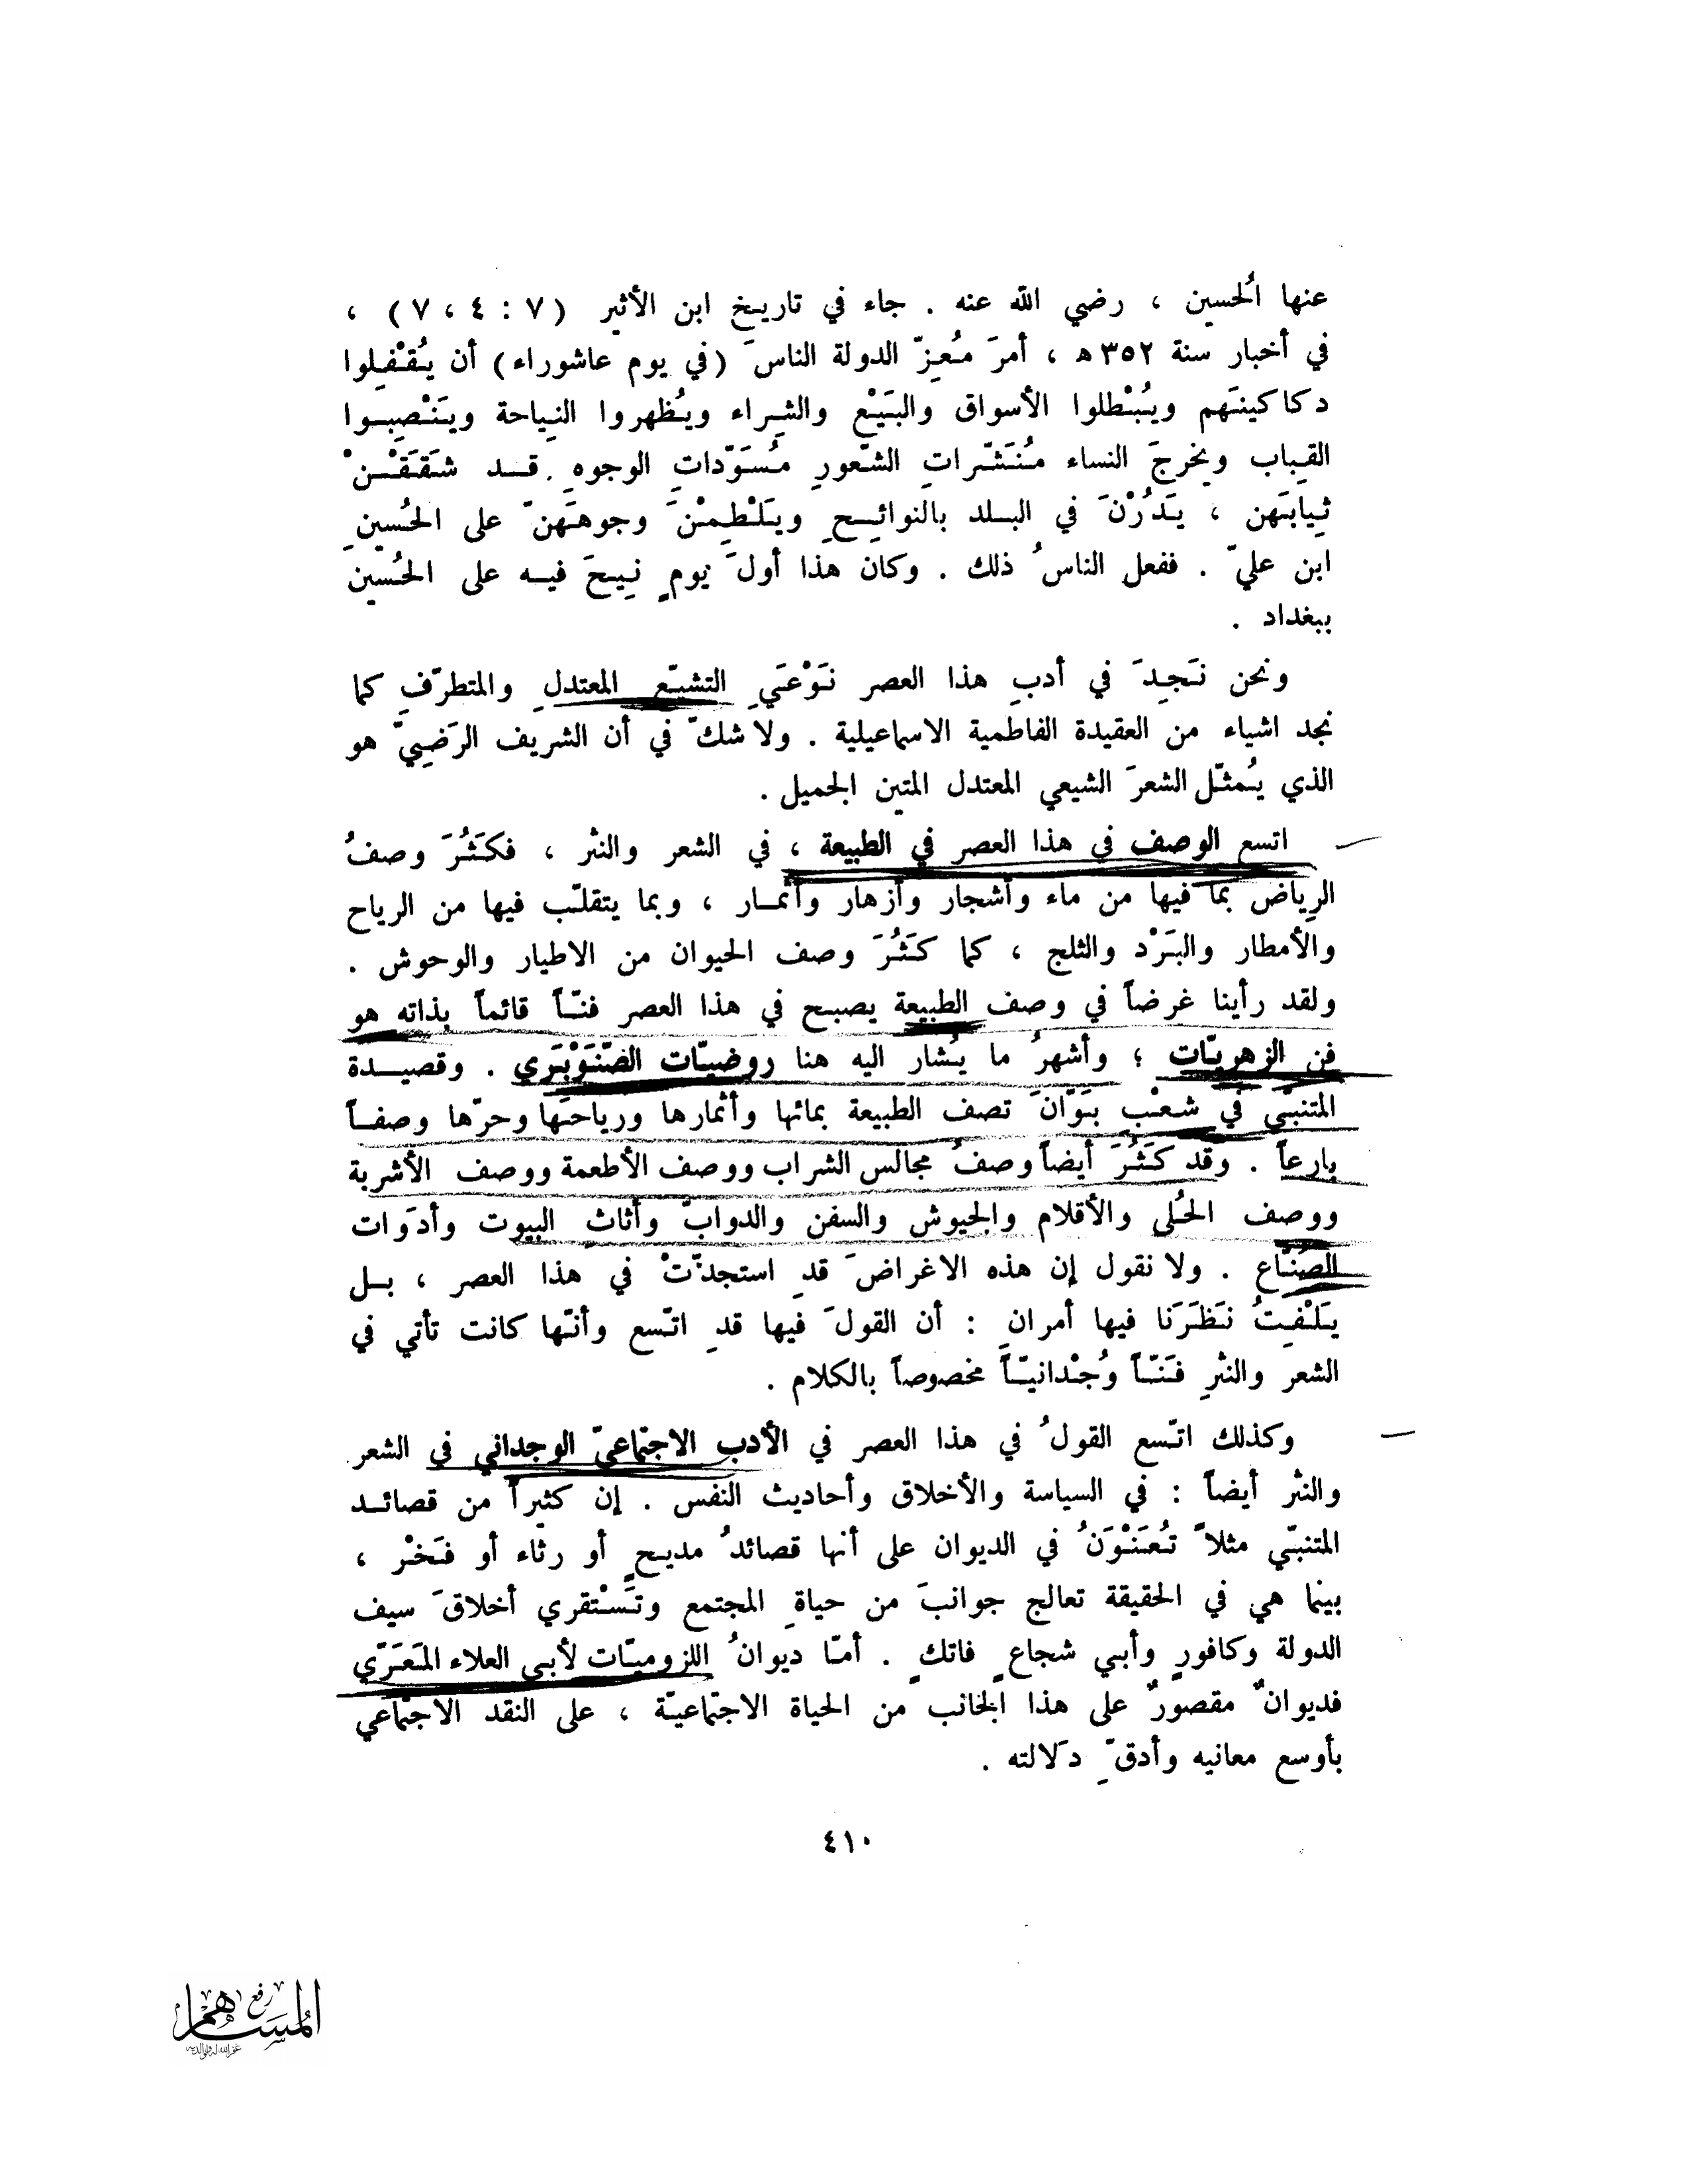 عنها الحسين ، رضي الله عنه . جاء في تاريخ ابن الأثير (٧ : ٤ ، ٧) ،
في أخبار سنة ٣٥٢ ه ، أمرَ مُعِزّ الدولة الناسَ (في يوم عاشوراء) أن يُقْفِلوا
دكاكينَهم ويُبْطلوا الأسواق والبَيْع والشِراء ويُظهروا النِياحة ويَنْصِبوا
القِباب ويخرجَ النساء مُنَشّراتِ الشّعورِ مُسَوّداتِ الوجوهِ . قد شَقَقْنْ
ثِيابَهن ، يَدُرْنَ في البلد بالنوائِحِ ويَلْطِمْنَ وجوهَهنّ على الحُسينِ
ابن عليّ . ففعل الناسُ ذلك . وكان هذا أولَ يومٍ نِيحَ فيه على الحُسين
ببغداد .
ونحن نَجِدَ في أدبِ هذا العصر نَوْعَيِ التشيّع المعتدلِ والمتطرّفِ كما
نجد اشياء من العقيدة الفاطمية الاسماعيلية . ولا شكّ في أن الشريف الرَضِيّ هو
الذي يُمثّل الشعرَ الشيعي المعتدل المتين الجميل .
اتسع الوصف في هذا العصر في الطبيعة ، في الشعر والنثر ، فكَثُرَ وصفُ
الرِياض بما فيها من ماء وأشجار وأزهار وأثمار ، وبما يتقلّب فيها من الرياح
والأمطار والبَرْد والثلج ، كما كَثُرَ وصف الحيوان من الاطيار والوحوش .
ولقد رأينا غرضاً في وصف الطبيعة يصبح في هذا العصر فنّاً قائماً بذاته هو
فن الزهريّات ؛ وأشهرُ ما يُشار اليه هنا روضيّات الصَّنَوْبَري . وقصيدة
المتنبّي في شعْبِ بَوّانَ تصف الطبيعة بمائها وأثمارها ورياحها وحرّها وصفاً
بارعاً . وقد كَثُرَ أيضاً وصفُ مجالس الشراب ووصف الأطعمة ووصف الأشربة
ووصف الحُلى والأقلام والجيوش والسفن والدوابّ وأثاثِ البيوت وأدَوات
الصُنّاع . ولا نقول إن هذه الاغراضَ قدِ استجدّتْ في هذا العصر ، بل
يَلْفِتُ نَظَرَنا فيها أمرانِ : أن القولَ فيها قدِ اتّسع وأنّها كانت تأتي في
الشعر والنثرِ فَنّاً وُجْدانيّاً مخصوصاً بالكلام .
وكذلك اتّسع القولُ في هذا العصر في الأدبِ الاجتماعيّ الوجداني في الشعر
والنثر أيضاً : في السياسة والأخلاق وأحاديث النفس . إن كثيراً من قصائد
المتنبّي مثلاً تُعَنْوَنُ في الديوان على أنها قصائدُ مديحٍ أو رثاء أو فَخْر ،
بينما هي في الحقيقة تعالج جوانبَ من حياةِ المجتمع وتَسْتقري أخلاقَ سيف
الدولة وكافورٍ وأبي شجاعٍ فاتكٍ . أمّا ديوانُ اللزوميّات لأبي العلاء المَعَرّي
فديوانٌ مقصورٌ على هذا الجانب من الحياة الاجتماعيّة ، على النقد الاجتماعي
بأوسع معانيه وأدقّ دَلالته .
٤١٠
رفع
المساهم
غفر الله له ولوالديه